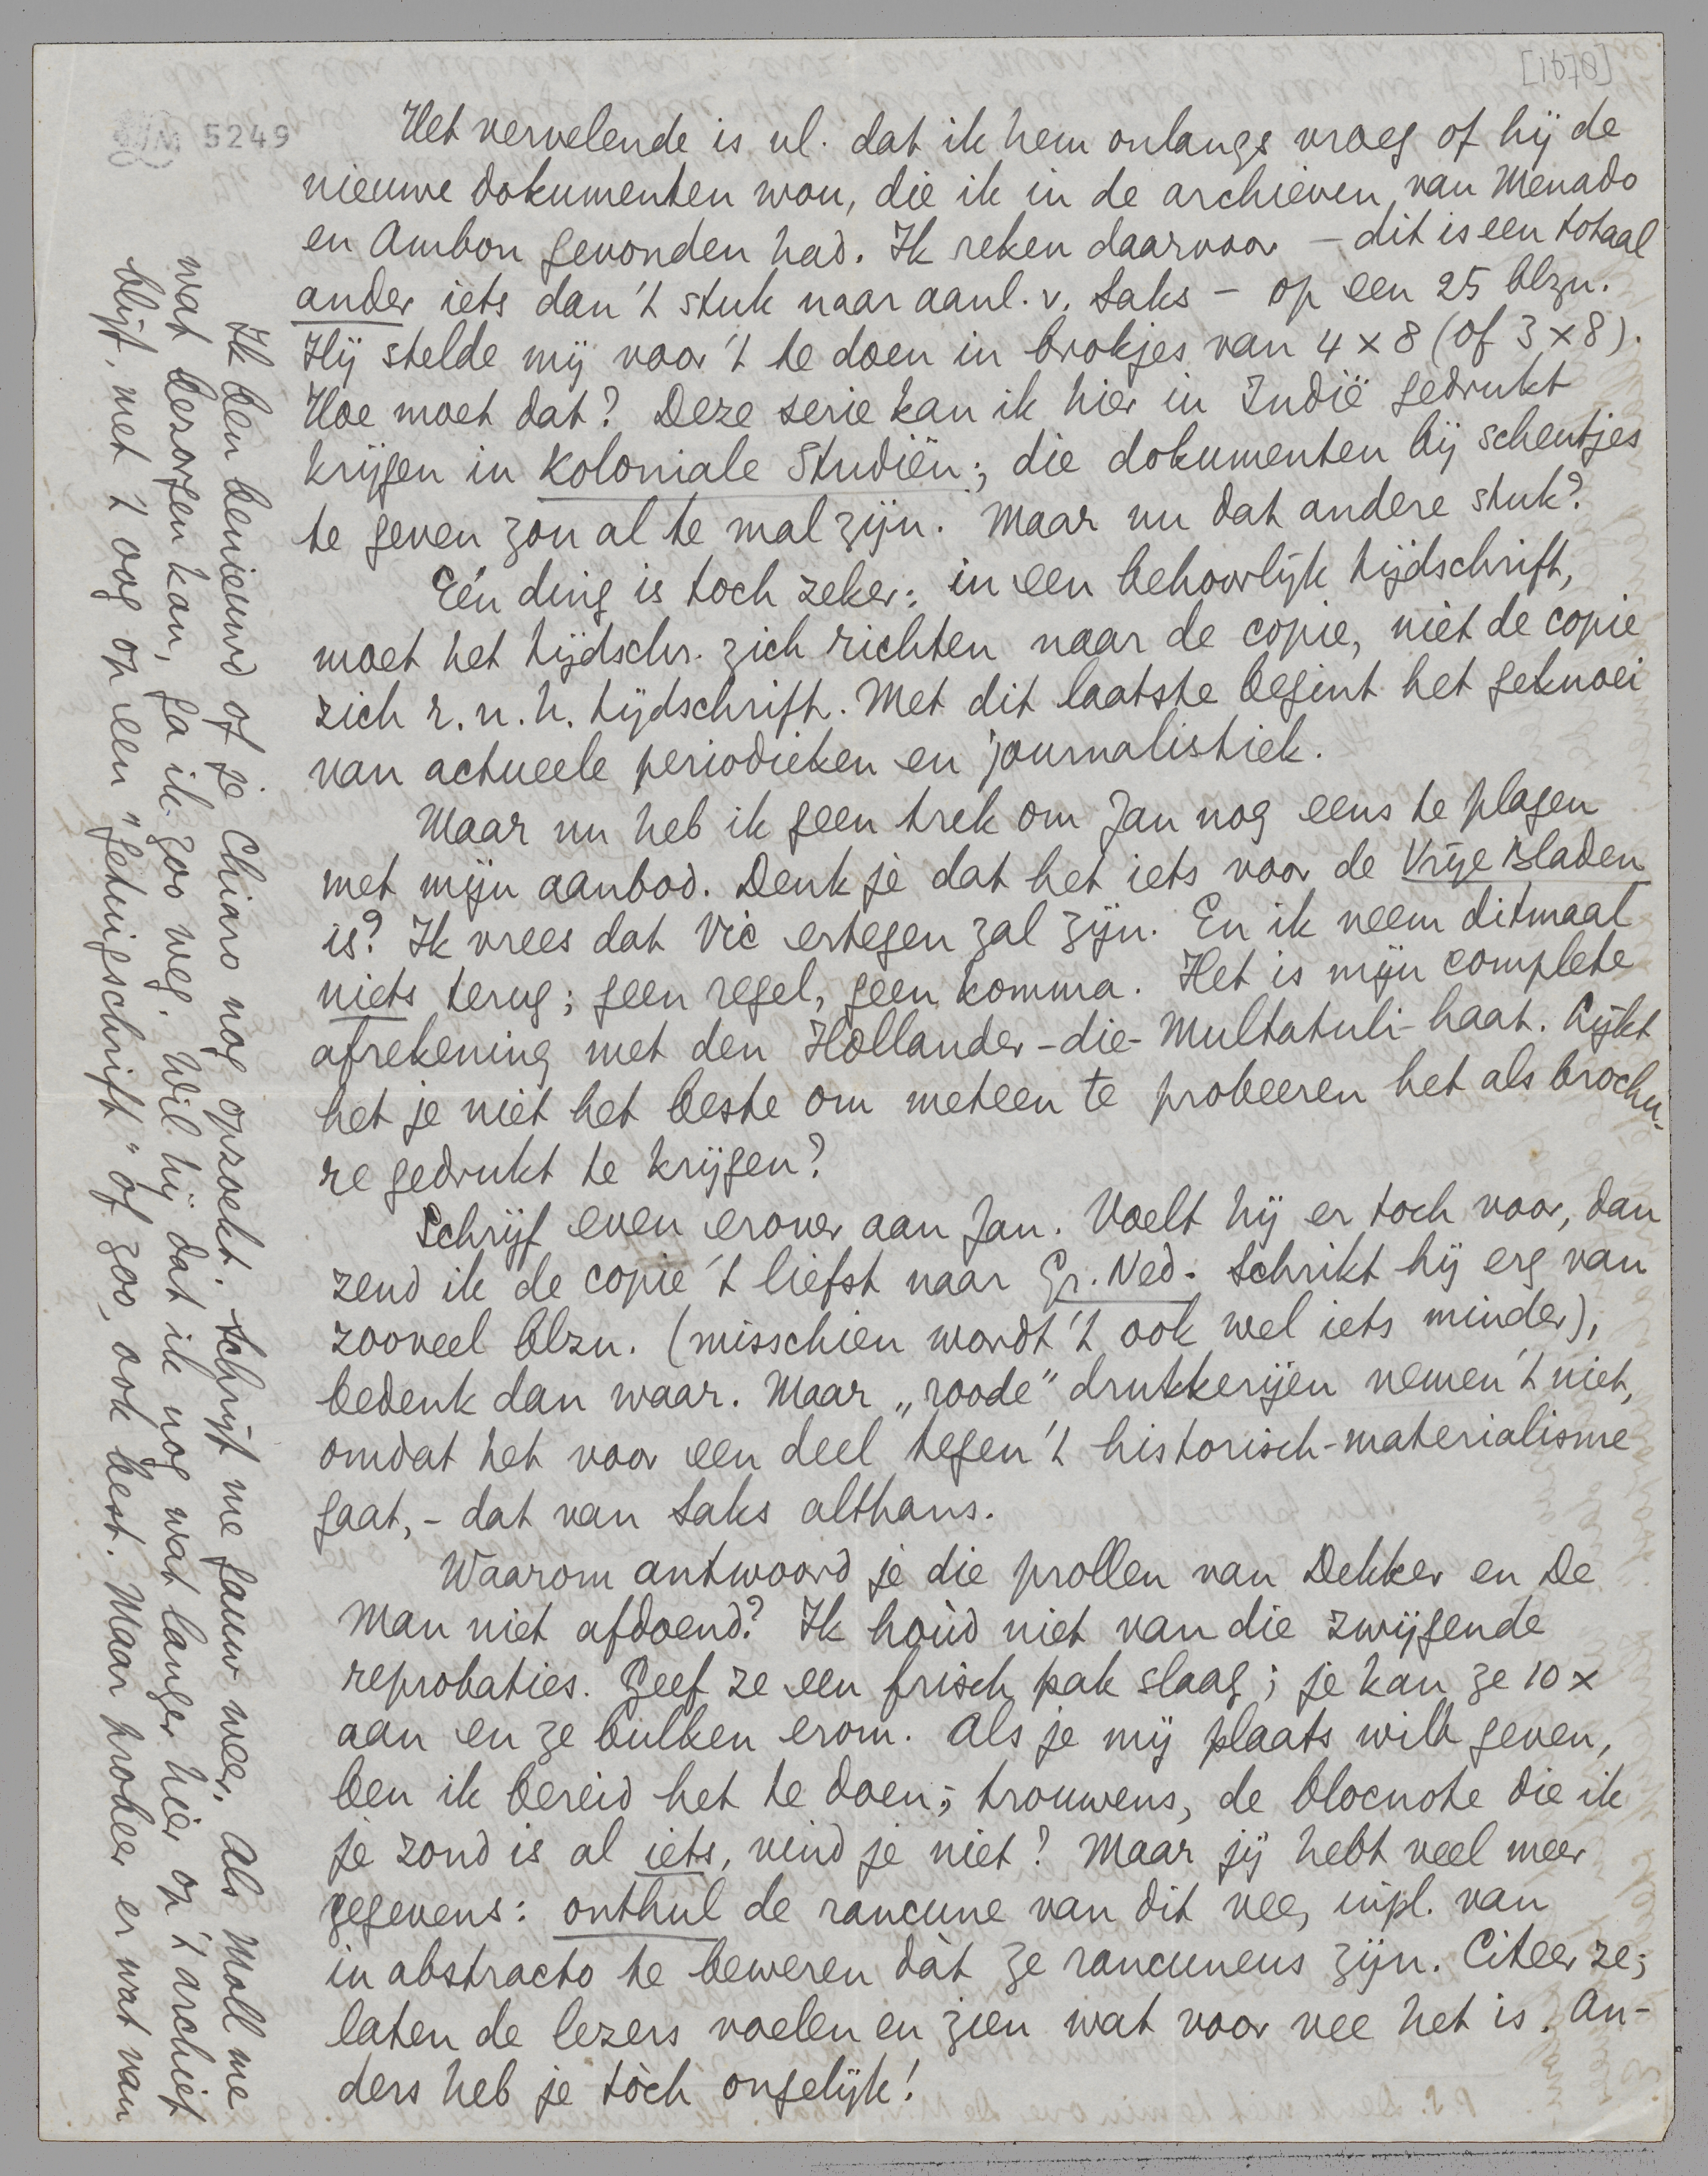 [1670]
5249
Het vervelende is nl. dat ik hem onlangs vroeg of hij de
nieuwe dokumenten wou, die ik in de archieven van Menado
en Ambon gevonden had. Ik reken daarvoor – dit is een totaal
ander iets dan 't stuk naar aanl. v. Saks – op een 25 blzn.
Hij stelde mij voor 't te doen in brokjes van 4 x 8 (of 3 x 8).
Hoe moet dat? Deze serie kan ik hier in Indië gedrukt
krijgen in Koloniale Studiën; die dokumenten bij scheutjes
te geven zou al te mal zijn. Maar nu dat andere stuk?
Eén ding is toch zeker: in een behoorlijk tijdschrift,
moet het tijdschr. zich richten naar de copie, niet de copie
zich r. n. h. tijdschrift. Met dit laatste begint het geknoei
van actueele periodieken en journalistiek.
Maar nu heb ik geen trek om Jan nog eens te plagen
met mijn aanbod. Denk je dat het iets voor de Vrije Bladen
is? Ik vrees dat Vic ertegen zal zijn. En ik neem ditmaal
niets terug; geen regel, geen komma. Het is mijn complete
afrekening met den Hollander-die-Multatuli-haat. Lijkt
het je niet het beste om meteen te probeeren het als brochu-
re gedrukt te krijgen?
Schrijf even erover aan Jan. Voelt hij er toch voor, dan
zend ik de copie 't liefst naar Gr. Ned. Schrikt hij erg van
zooveel blzn. (misschien wordt 't ook wel iets minder),
bedenk dan waar. Maar „roode" drukkerijen nemen 't niet,
omdat het voor een deel tegen 't historisch-materialisme
gaat, – dat van Saks althans.
Waarom antwoord je die prollen van Dekker en De
Man niet afdoend? Ik hoùd niet van die zwijgende
reprobaties. Geef ze een frisch pak slaag; je kan ze 10 x
aan en ze bulken erom. Als je mij plaats wilt geven,
ben ik bereid het te doen; trouwens, de blocnote die ik
je zond is al iets, vind je niet? Maar jij hebt veel meer
gegevens: onthul de rancune van dit vee, inpl. van
in abstracto te beweren dàt ze rancuneus zijn. Citeer ze;
laten de lezers voelen en zien wat voor vee het is. An-
ders heb je tòch ongelijk!
Ik ben benieuwd of je Chiaro nog opzoekt. Schrijf me gauw weer. Als Moll me
wat bezorgen kan, ga ik zoo weg. Wil hij dat ik nog wat langer hier op 't archief
blijf, met 't oog op een „getuigschrift" of zoo, ook best. Maar probeer er wat van